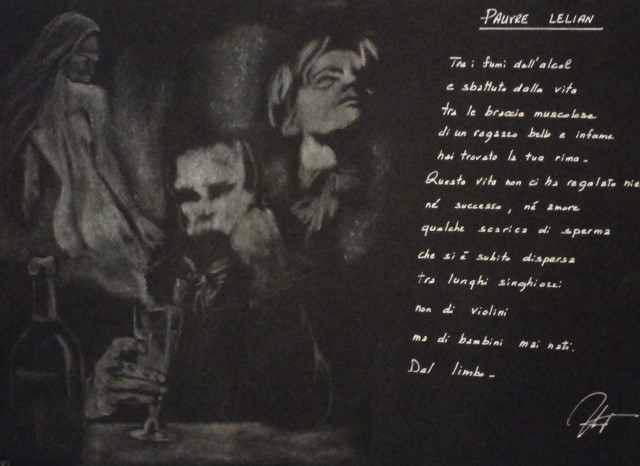 PAUVRE LELIAN
Tra i fumi dell'alcol
e sbattuto dalla vita
tra le braccia muscolose
di un ragazzo bello e infame
hai trovato la tua rima.
Questa vita non ci ha regalato nie
né successo, né amore
qualche scarica di sperma
che si è subito dispersa
tra lunghi singhiozzi
non di violini
ma di bambini mai nati.
Dal limbo.